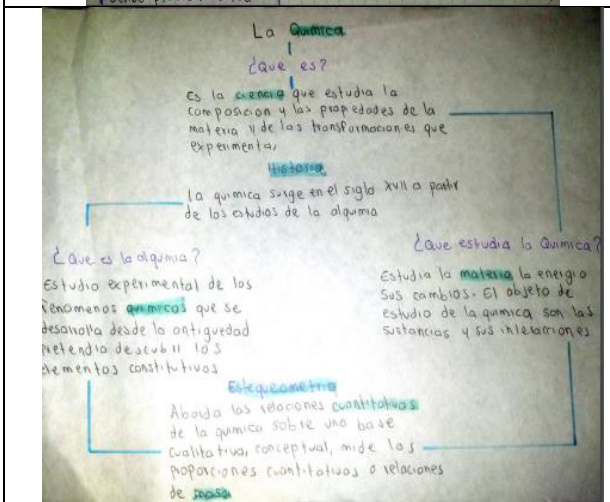 La Quimica
¿Que es?
Es la ciencia que estudia la
composicion y las propedades de la
materia y de las transformaciones que
experimenta,
Historia
la quimica surge en el siglo XVII a partir
de los estudios de la alquimia
¿Que es la alquimia?
Estudio experimental de los
Fenomenos quimicos que se
desarrolla desde la antiguedad
pretendia descubrir los
elementos constitutivos
¿Que estudia la Quimica?
Estudia la materia la energia
sus cambios. El objeto de
estudio de la quimica son las
sustancias y sus interacciones
Estequeometria
Aborda las relaciones cuantitativas
de la quimica sobre una base
cualitativa, conceptual, mide las
proporciones cuantitativas o relaciones
de masa